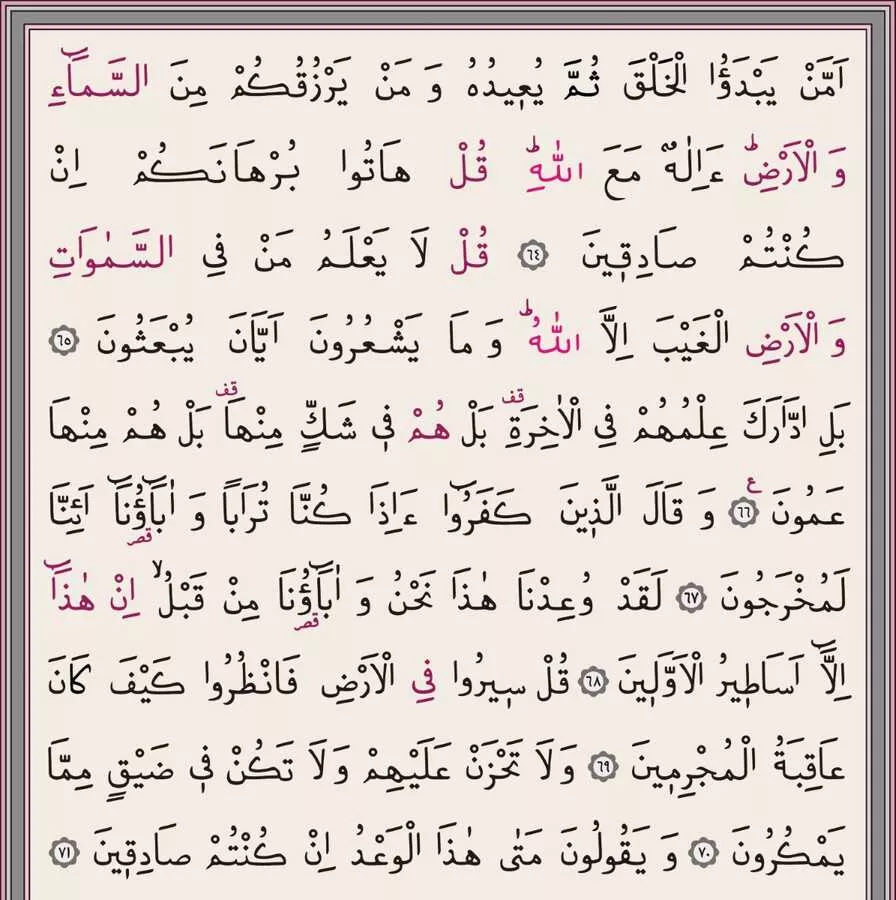 اَمَّنْ يَبْدَؤُا الْخَلْقَ ثُمَّ يُعٖيدُهُ وَ مَنْ يَرْزُقُكُمْ مِنَ السَّمَٓاءِ
وَ الْاَرْضِؕ ءَاِلٰهٌ مَعَ اللّٰهِؕ قُلْ هَاتُوا بُرْهَانَكُمْ اِنْ
كُنْتُمْ صَادِقٖينَ ٦٤ قُلْ لَا يَعْلَمُ مَنْ فِي السَّمٰوَاتِ
وَ الْاَرْضِ الْغَيْبَ اِلَّا اللّٰهُؕ وَ مَا يَشْعُرُونَ اَيَّانَ يُبْعَثُونَ ٦٥
بَلِ ادَّارَكَ عِلْمُهُمْ فِي الْاٰخِرَةِࣞ قف بَلْ هُمْ فٖي شَكٍّ مِنْهَا قف بَلْ هُمْ مِنْهَا
عَمُونَ ٦٦ ع وَ قَالَ الَّذٖينَ كَفَرُٓوا ءَاِذَا كُنَّا تُرَاباً وَ اٰبَٓاؤُ۬نَٓا قصر اَئِنَّا
لَمُخْرَجُونَ ٦٧ لَقَدْ وُعِدْنَا هٰذَا نَحْنُ وَ اٰبَٓاؤُ۬نَا قصر مِنْ قَبْلُۙ اِنْ هٰذَٓا
اِلَّٓا اَسَاطٖيرُ الْاَوَّلٖينَ ٦٨ قُلْ سٖيرُوا فِي الْاَرْضِ فَانْظُرُوا كَيْفَ كَانَ
عَاقِبَةُ الْمُجْرِمٖينَ ٦٩ وَلَا تَحْزَنْ عَلَيْهِمْ وَلَا تَكُنْ فٖي ضَيْقٍ مِمَّا
يَمْكُرُونَ ٧٠ وَ يَقُولُونَ مَتٰى هٰذَا الْوَعْدُ اِنْ كُنْتُمْ صَادِقٖينَ ٧١